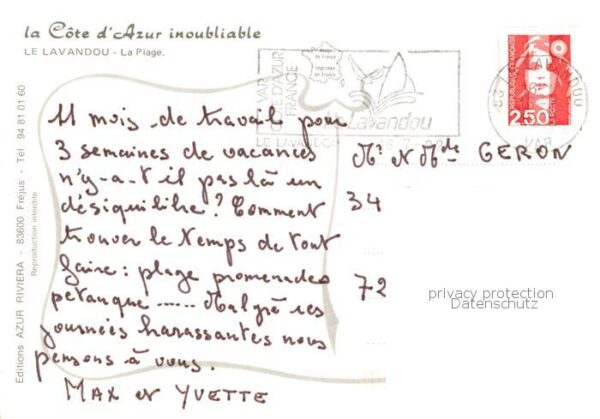 la Côte d'Azur inoubliable
LE LAVANDOU - La Plage.
VAR
CÔTE D'AZUR
FRANCE
Lavandou
LE LAVANDOU
LAVANDOU
VAR
RÉPUBLIQUE FRANÇAISE
2,50
LA POSTE
11 mois de travail pour
3 semaines de vacances
n'y-a-t il pas là un
désiquilibre? Comment
trouver le temps de tout
faire: plage promenades
petanque ...... Malgré ces
journées harassantes nous
pensons à vous.
MAX et YVETTE
Mr et Mde GERON
34
72
privacy protection
Datenschutz
Editions AZUR RIVIERA - 83600 Fréjus - Tél. 94 81 01 60
Reproduction interdite